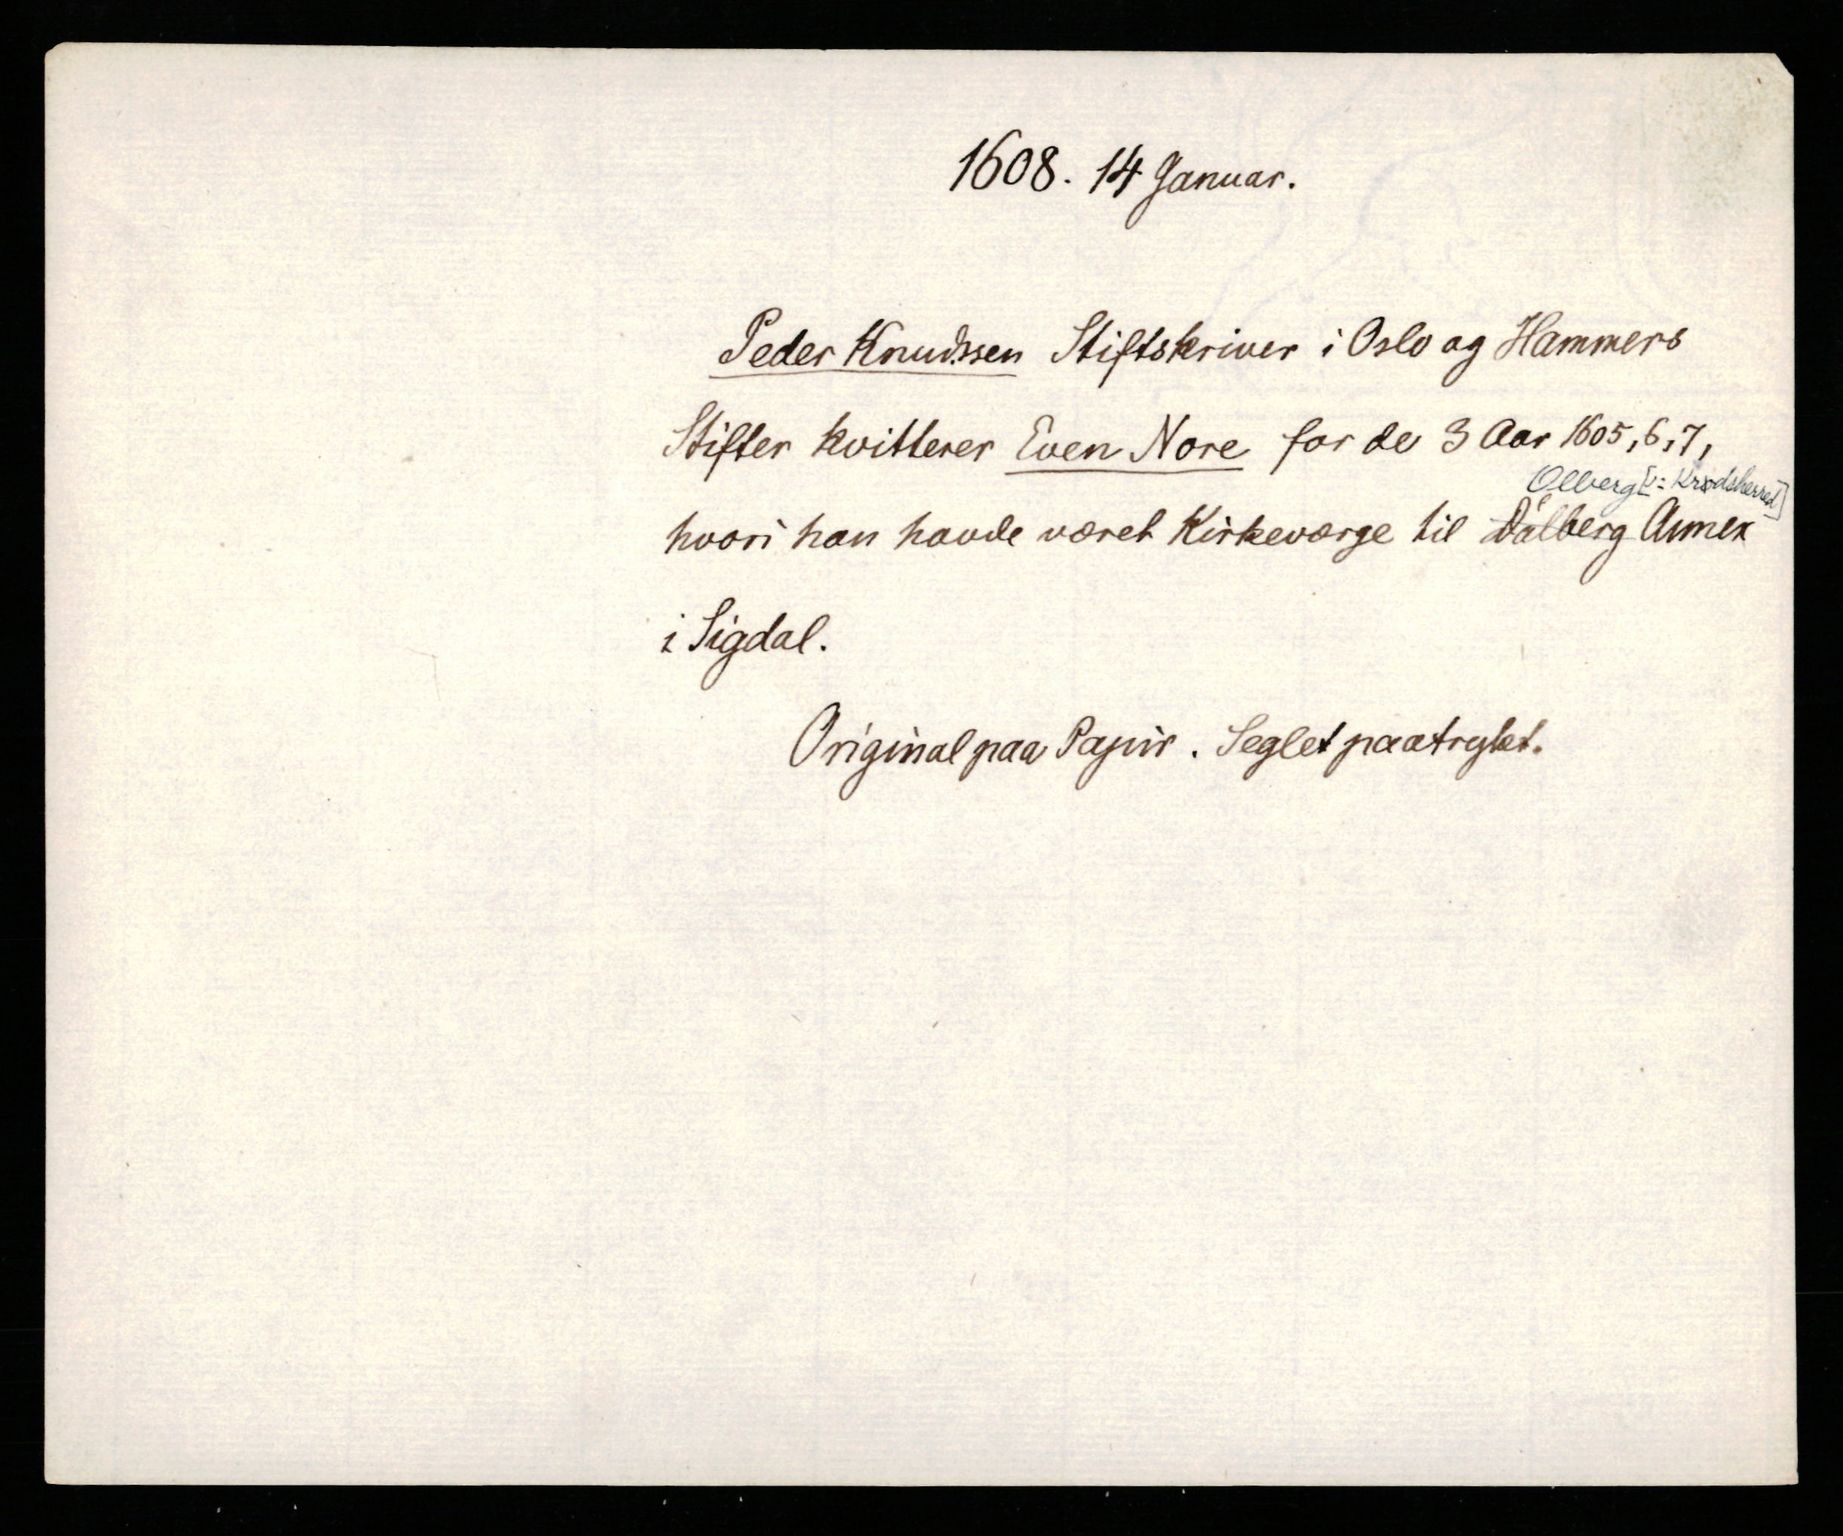 1608. 14 Januar.
Peder Knudssen Stiftskriver i Oslo og Hammers
Stifter kvitterer Even Nore for de 3 Aar 1605, 6, 7,
Olberg [ɔ: Krødsherred]
hvori han havde været Kirkeværge til Dalberg Annex
i Sigdal.
Original paa Papir. Seglet paatrykt.